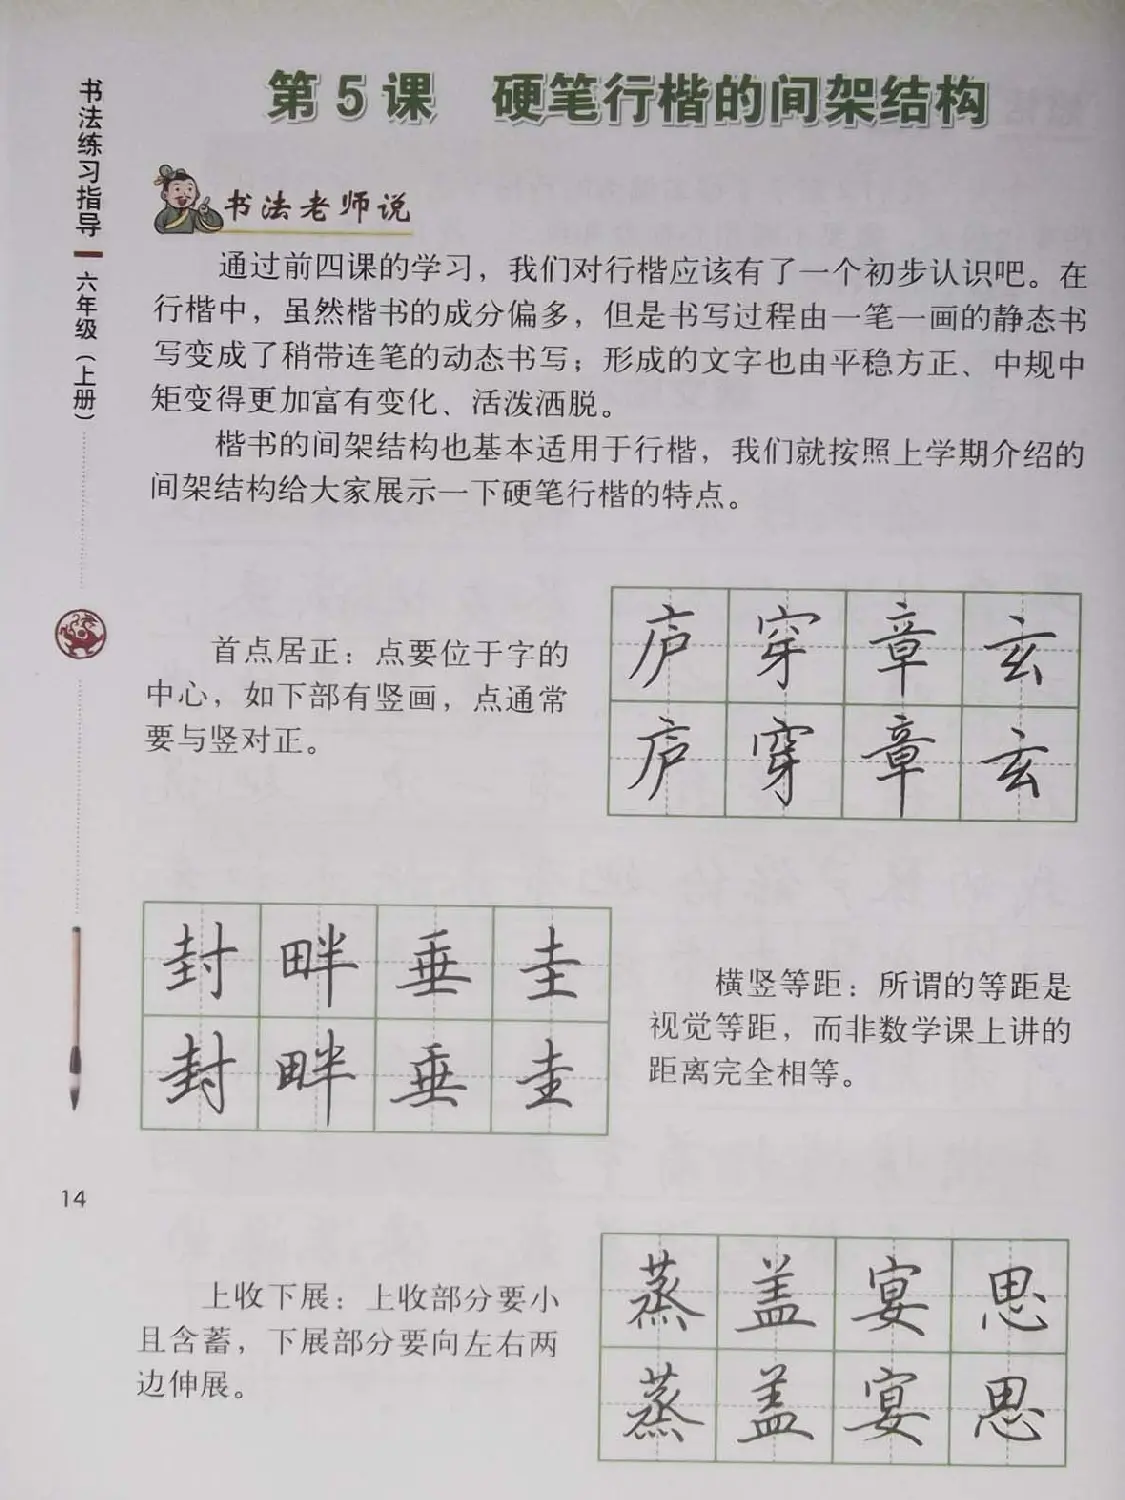 第5课 硬笔行楷的间架结构
书法练习指导
六年级（上册）
书法老师说
通过前四课的学习，我们对行楷应该有了一个初步认识吧。在
行楷中，虽然楷书的成分偏多，但是书写过程由一笔一画的静态书
写变成了稍带连笔的动态书写；形成的文字也由平稳方正、中规中
矩变得更加富有变化、活泼洒脱。
楷书的间架结构也基本适用于行楷，我们就按照上学期介绍的
间架结构给大家展示一下硬笔行楷的特点。
首点居正：点要位于字的
中心，如下部有竖画，点通常
要与竖对正。
庐穿章玄
庐穿章玄
封畔垂圭
封畔垂圭
横竖等距：所谓的等距是
视觉等距，而非数学课上讲的
距离完全相等。
14
上收下展：上收部分要小
且含蓄，下展部分要向左右两
边伸展。
蒸盖宴思
蒸盖宴思